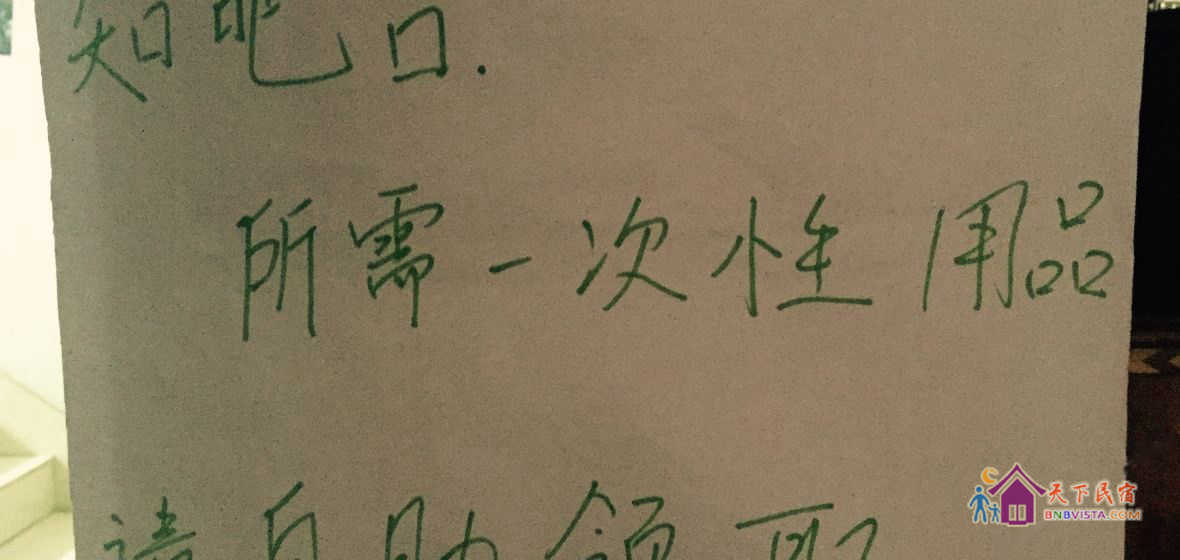 知吧口.
所需一次性用品
请自助领取
天下民宿
BNBVISTA.COM